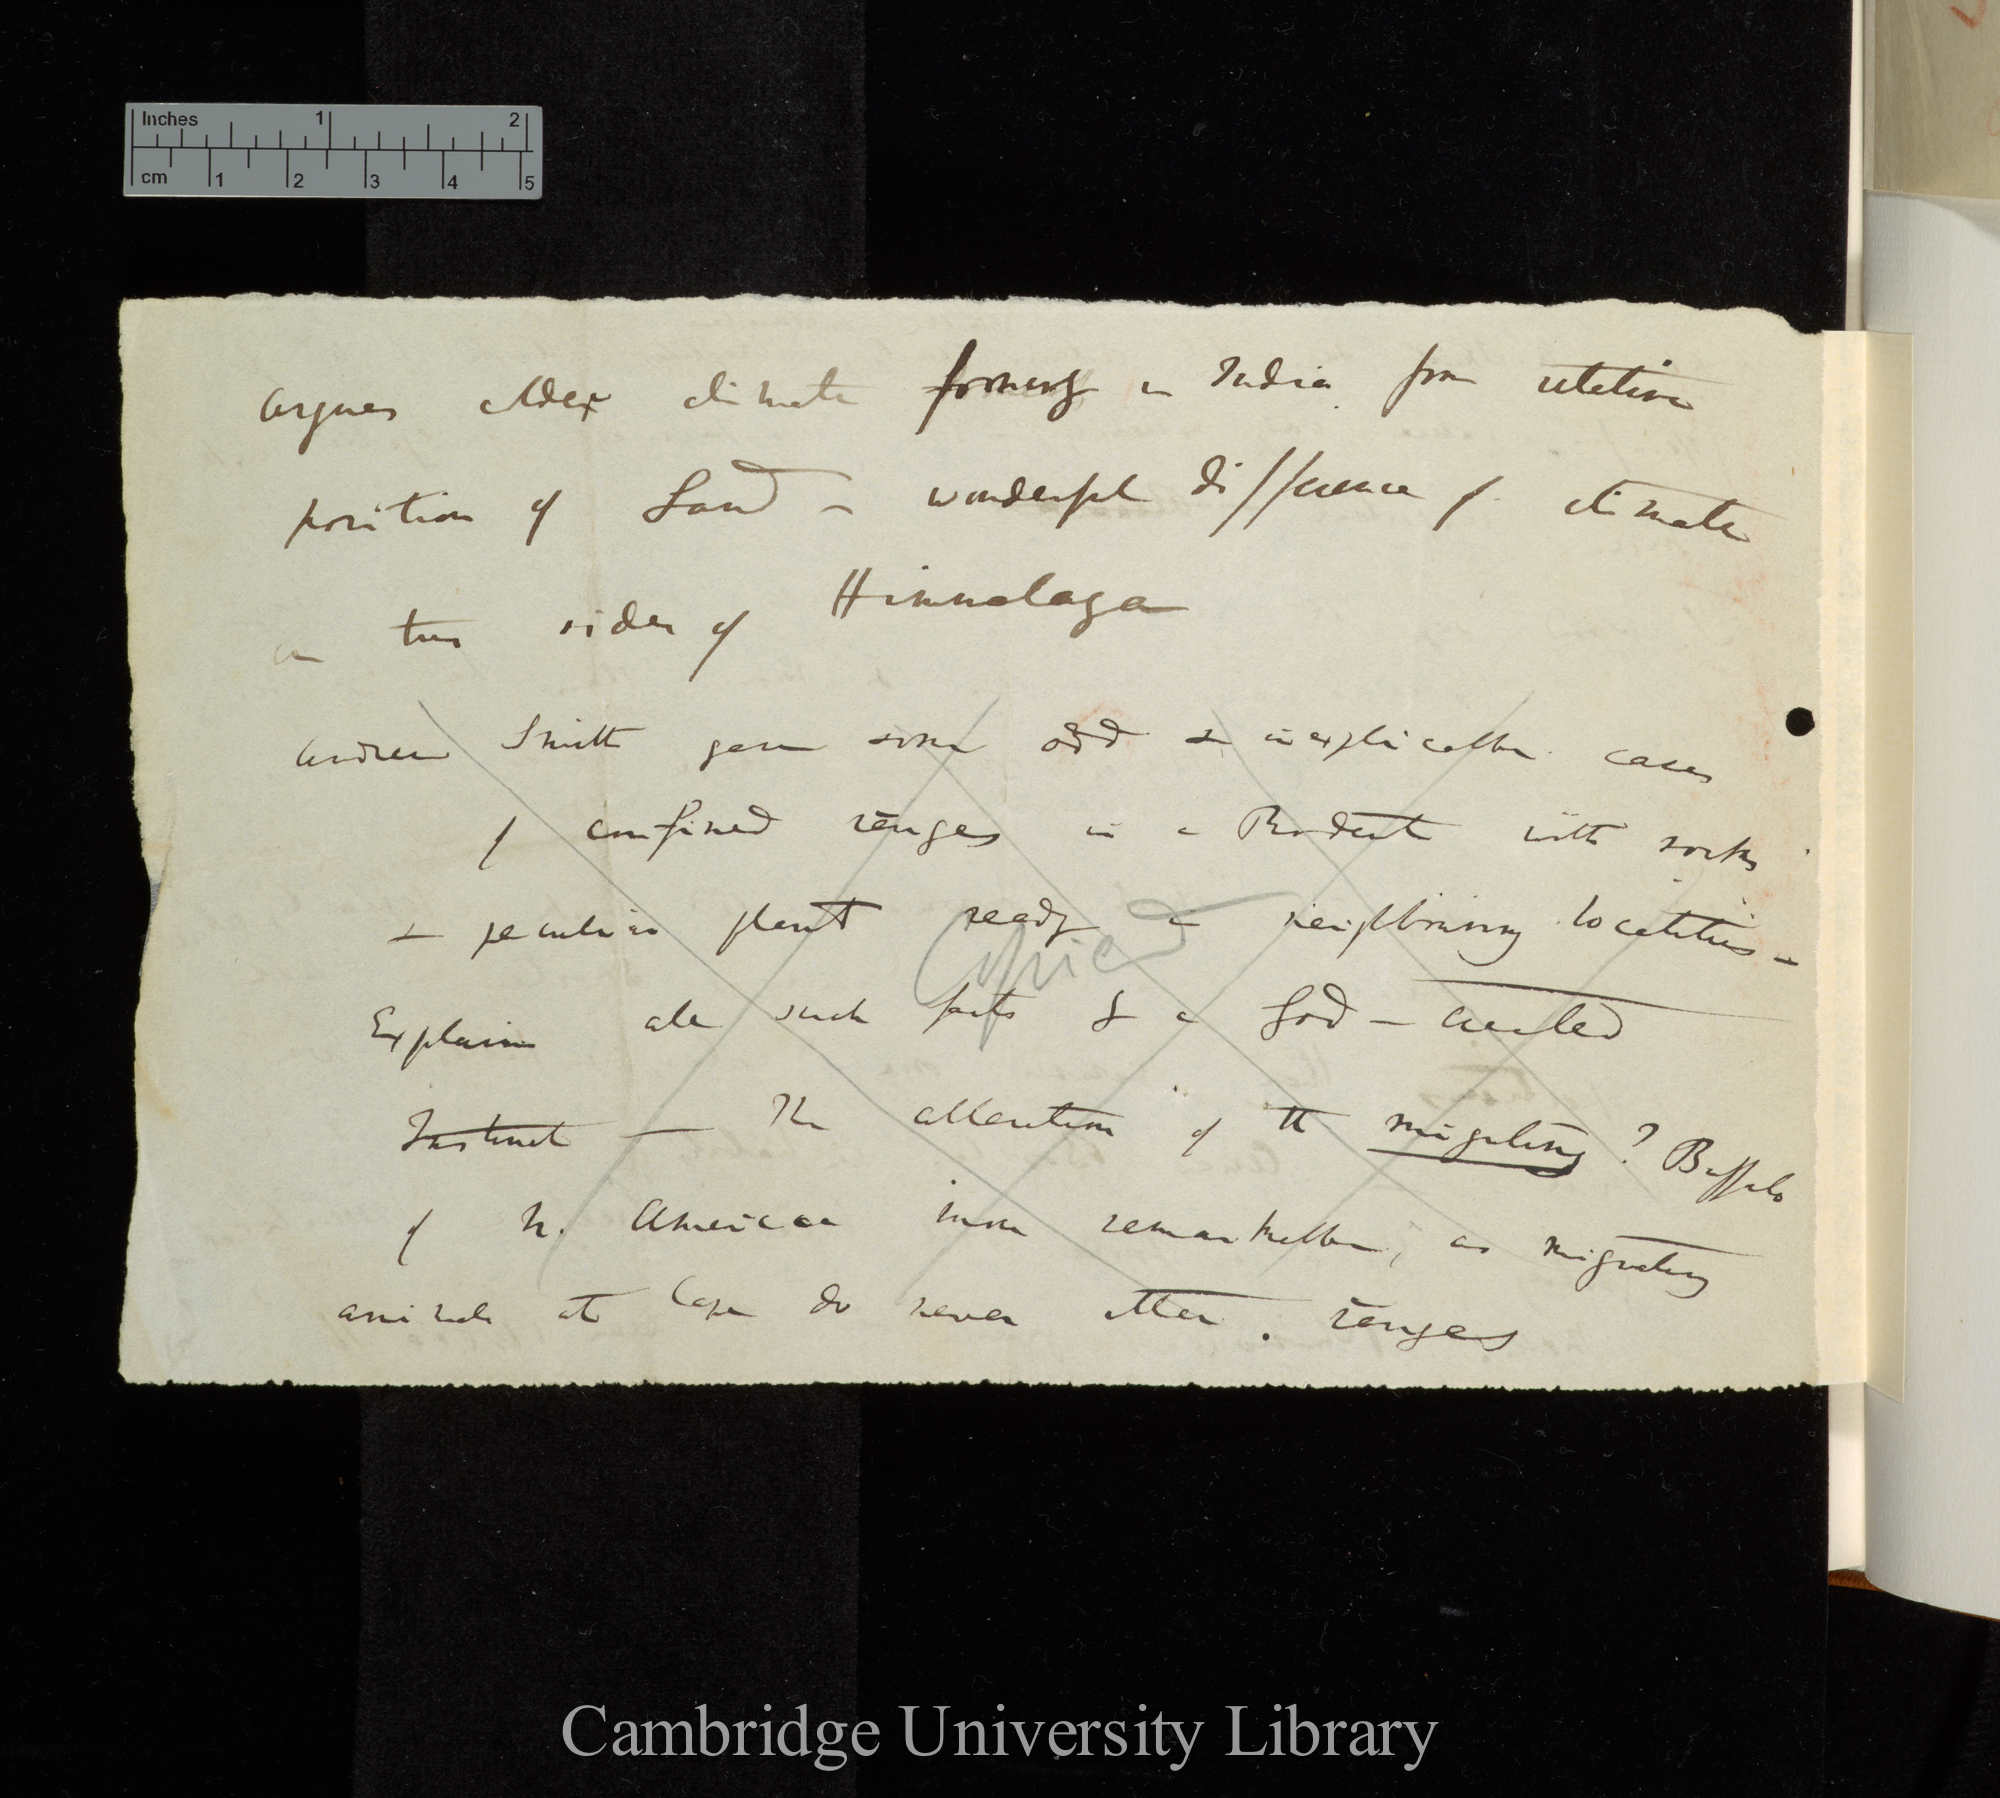 Inches 1 2
cm 1 2 3 4 5
argues older climate formerly in India from relative
position of Land – wonderful difference of climate
on two sides of Himmalaya
Andrew Smith gave some odd & inexplicable cases
of confined ranges in a Rodent with rocks
& peculiar plant ready in neighbouring localities –
Copied
Explain all such facts by a God – created
Instinct — The alteration of the migrating? Buffalo
of N. America more remarkable, as migratory
animals at Cape do never alter. ranges
Cambridge University Library